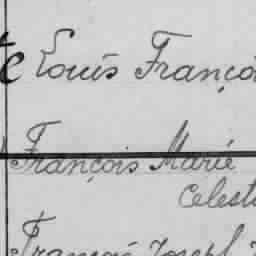 Louis Franço
François Marie
Celest
François Joseph